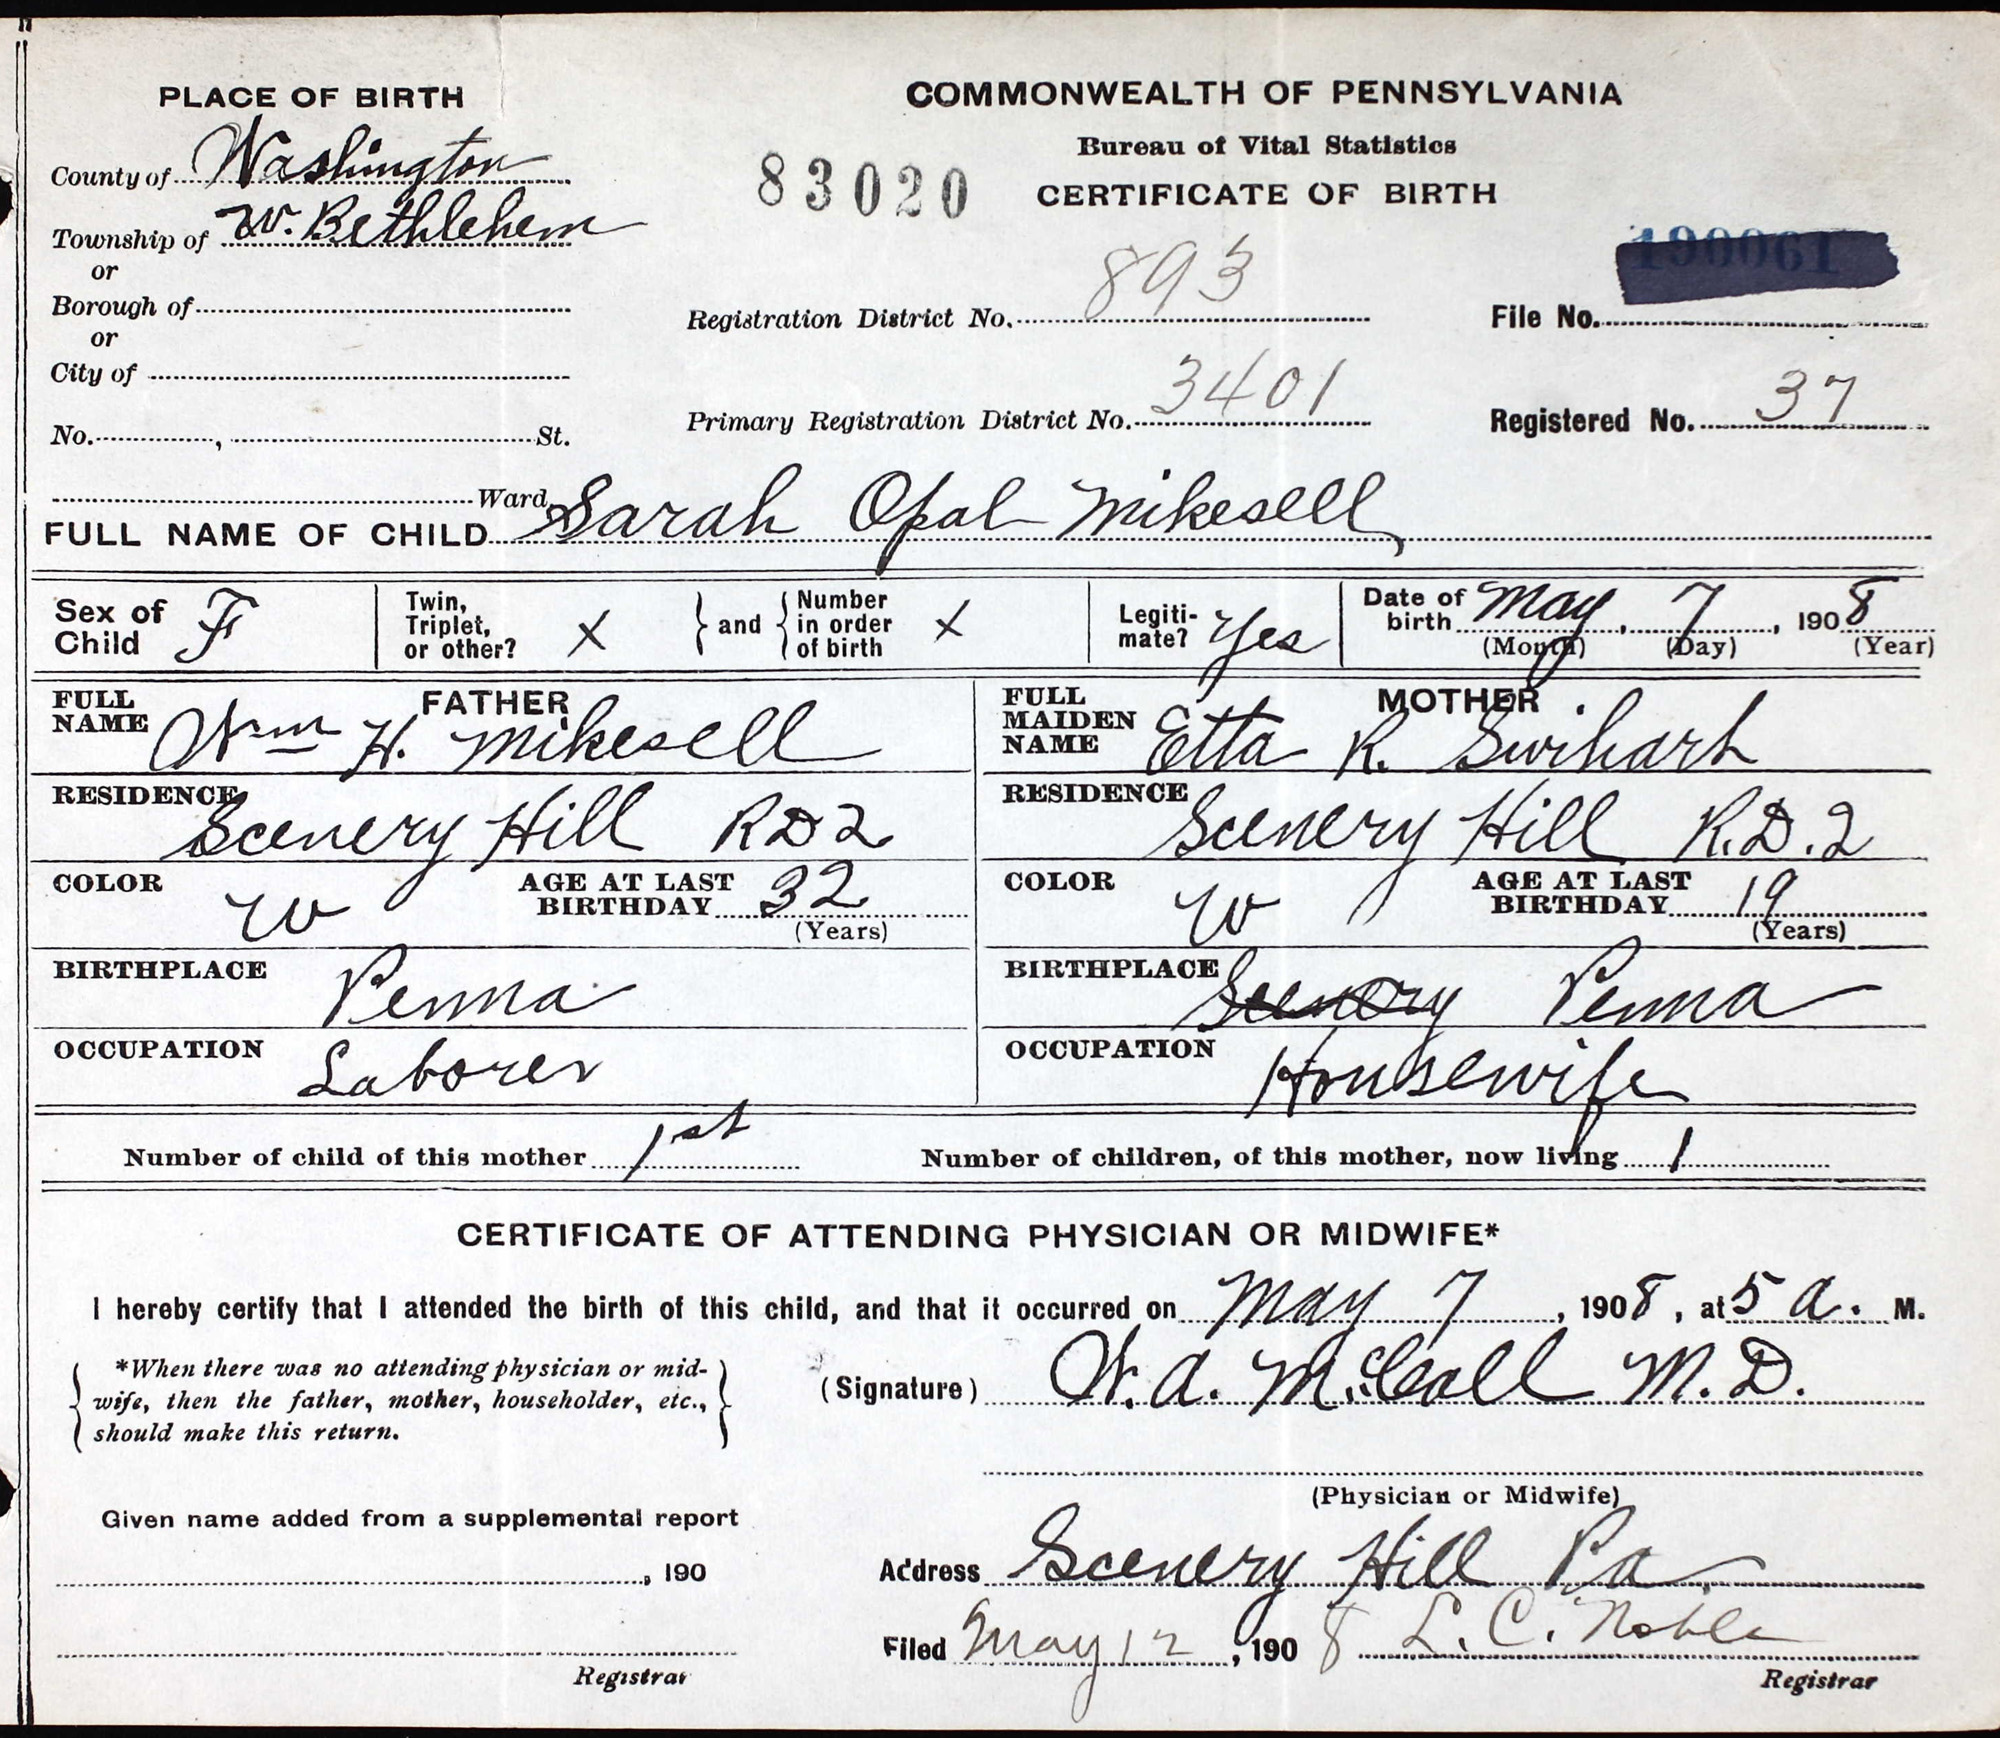 PLACE OF BIRTH
County of Washington
Township of W. Bethlehem
or
Borough of
or
City of
No. , St.
Ward
COMMONWEALTH OF PENNSYLVANIA
Bureau of Vital Statistics
CERTIFICATE OF BIRTH
83020
190061
Registration District No. 893
File No.
Primary Registration District No. 3401
Registered No. 37
FULL NAME OF CHILD Sarah Opal Mikesell
Sex of Child F
Twin, Triplet, or other? X
and Number in order of birth X
Legitimate? Yes
Date of birth May, 7, 1908
(Month) (Day) (Year)
FATHER
FULL NAME Wm H. Mikesell
RESIDENCE Scenery Hill RD2
COLOR W AGE AT LAST BIRTHDAY 32
(Years)
BIRTHPLACE Penna
OCCUPATION Laborer
MOTHER
FULL MAIDEN NAME Etta R. Swihart
RESIDENCE Scenery Hill R.D.2
COLOR W AGE AT LAST BIRTHDAY 19
(Years)
BIRTHPLACE Scenery Penna
OCCUPATION Housewife
Number of child of this mother 1st Number of children, of this mother, now living 1
CERTIFICATE OF ATTENDING PHYSICIAN OR MIDWIFE*
I hereby certify that I attended the birth of this child, and that it occurred on May 7, 1908, at 5 a. M.
*When there was no attending physician or mid-
wife, then the father, mother, householder, etc.,
should make this return.
(Signature) W. A. McCall M.D.
(Physician or Midwife)
Given name added from a supplemental report
, 190
Registrar
Address Scenery Hill Pa
Filed May 12, 1908 L. C. Noble
Registrar